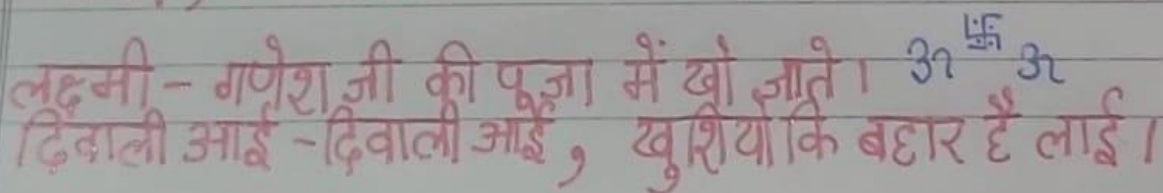 लक्ष्मी - गणेश जी की पूजा में खो जाते। ॐ 卐 ॐ
दिवाली आई - दिवाली आई, खुशियो कि बहार है लाई।